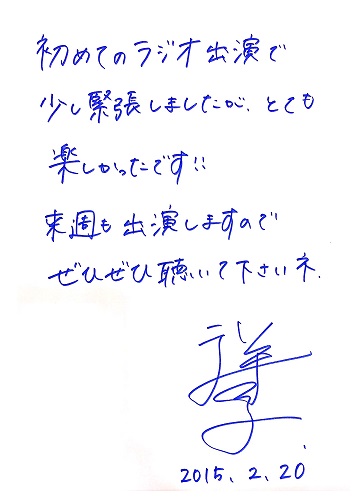 初めてのラジオ出演で
少し緊張しましたが、とても
楽しかったです!!
来週も出演しますので
ぜひぜひ聴いて下さいネ.
2015. 2. 20